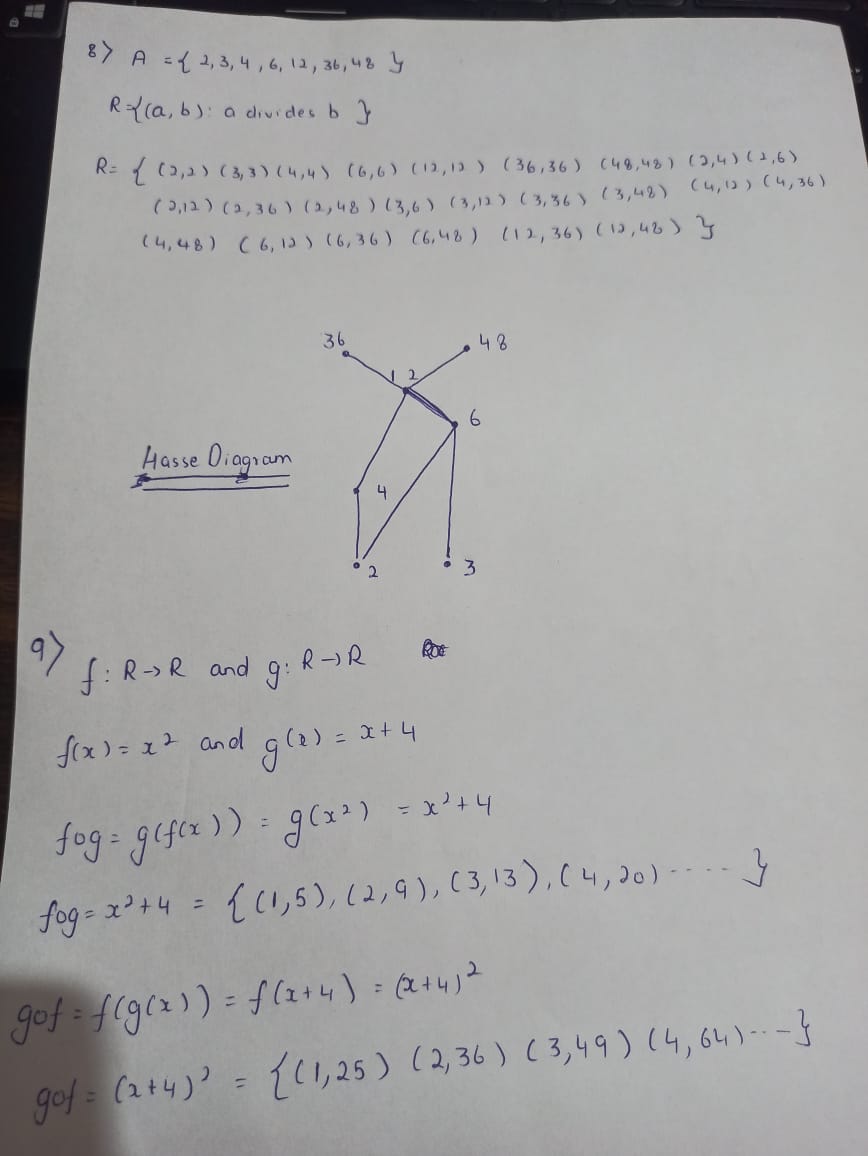 8) A = { 2, 3, 4, 6, 12, 36, 48 }
R = {(a, b): a divides b }
R = { (2,2) (3,3) (4,4) (6,6) (12,12) (36,36) (48,48) (2,4) (2,6)
(2,12) (2,36) (2,48) (3,6) (3,12) (3,36) (3,48) (4,12) (4,36)
(4,48) (6,12) (6,36) (6,48) (12,36) (12,48) }
36
48
12
6
Hasse Diagram
4
2
3
9) f: R→R and g: R→R
f(x) = x² and g(x) = x+4
fog = g(f(x)) = g(x²) = x²+4
fog = x²+4 = { (1,5), (2,9), (3,13), (4,20) ..... }
gof = f(g(x)) = f(x+4) = (x+4)²
gof = (x+4)² = {(1,25) (2,36) (3,49) (4,64) ...}